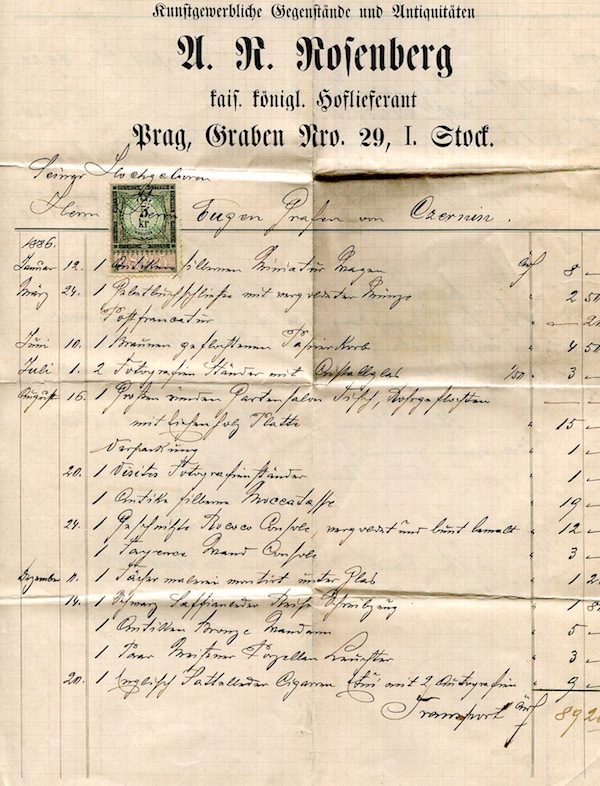 Kunstgewerbliche Gegenstände und Antiquitäten
A. R. Rosenberg
kais. königl. Hoflieferant
Prag, Graben Nro. 29, I. Stock.
Seiner Hochgeboren
Herrn Herrn Eugen Grafen von Czernin.
5
kr
1886.
Januar 12. 1 Antiken silbernen Miniatur Wagen 8 —
März 24. 1 Gebetbuchschließe mit vergoldeter Münze " 2 50
Postfrancatur " —
Juni 10. 1 Braunen geflochtenen Papierkorb " 4 50
Juli 1. 2 Fotografien Ständer mit Cristallglas 1/50 " 3 —
August 16. 1 Großen runden Gartensalon Tisch, Rohrgeflochten
mit Platte " 15 —
Verpackung " 1 —
20. 1 Visites Fotografienständer " 1 —
1 Antike silberne Moccatasse " 19 —
24. 1 Geschnitzte Rococo Console, vergoldet und bunt bemalt " 12 —
1 Fayence Wand Console " 3 —
Dezember 11. 1 Fächer malerei montirt unter Glas " 1
14. 1 Schwarz Saffianleder Reise Schreibzeug " 1
1 Antiken Bronze " 5 —
1 Paar Meißener Porzellan Leuchter " 3 —
20. 1 Englisch Sattelleder Cigarren Etui mit 2 Autografien " 9 —
Transport 89